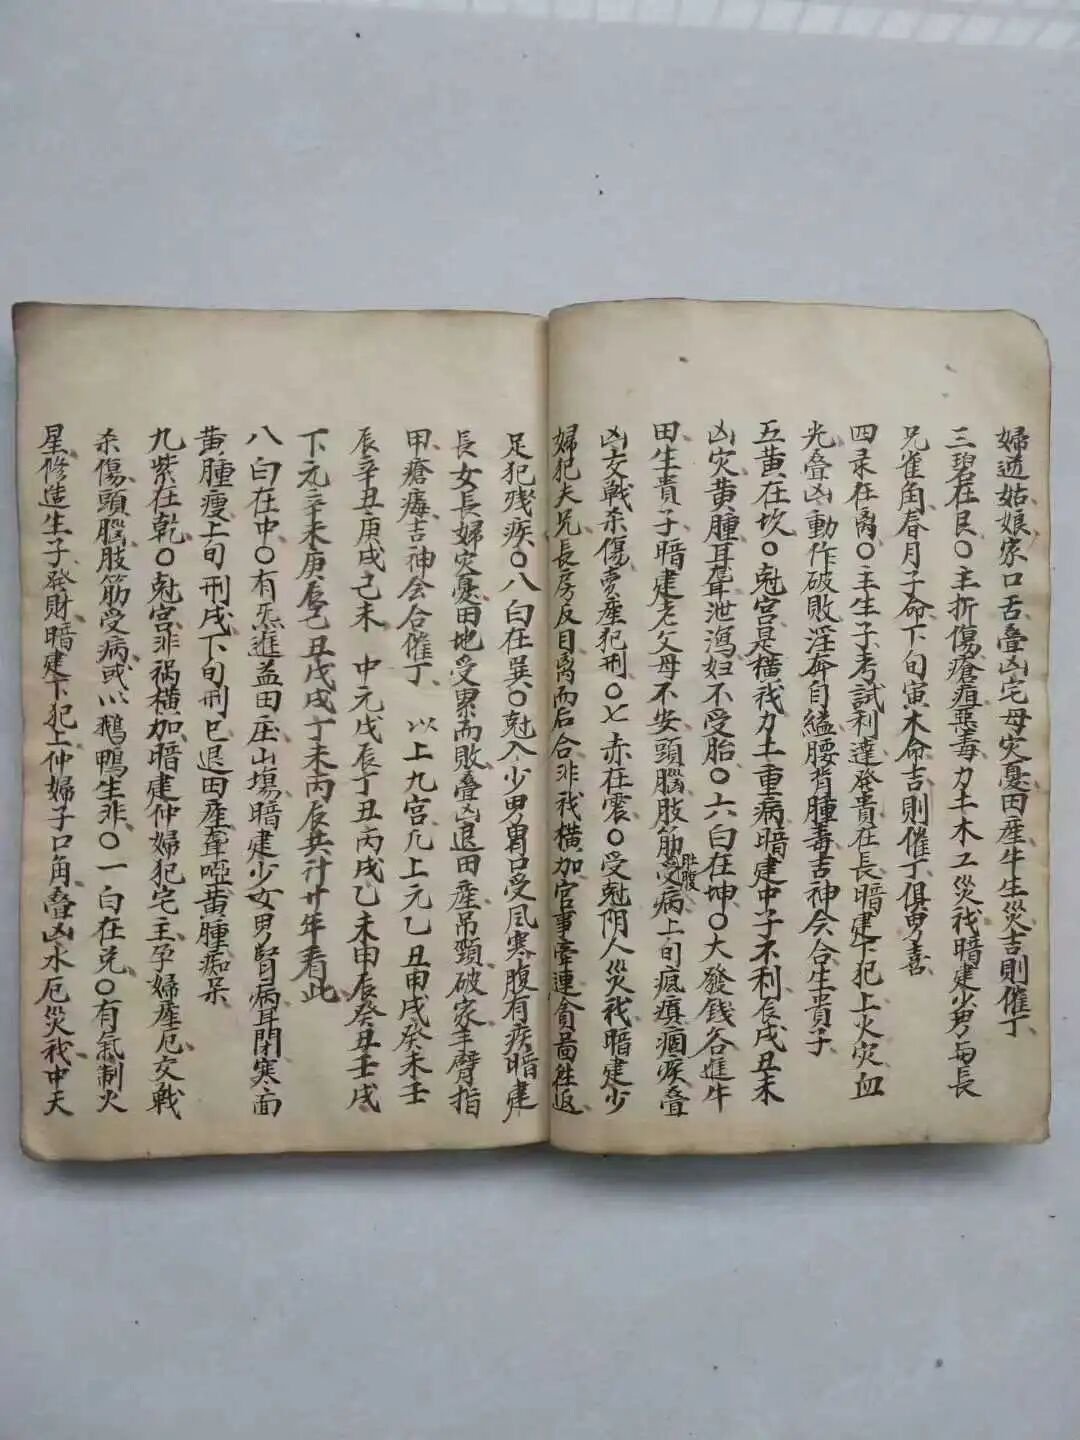 婦逆姑娘家口舌叠凶宅母灾憂田産牛生災吉則催丁
三碧在艮〇主折傷瘡疽藥毒力土木工災我暗建少男与長
兄雀角春月子命下旬寅木命吉則催丁俱男喜
四彔在离〇主生子考試利達發貴在長暗建下犯上火灾血
光叠凶動作破敗淫奔自縊腰背腫毒吉神会合生貴子
五黄在坎〇尅宫是横我力土重病暗建中子不利辰戌丑未
凶灾黄腫耳聋泄瀉妇不受胎〇六白在坤〇大發钱谷進牛
田生貴子暗建老父母不安頭腦肢筋肚腹受病上旬瘋癀痼疾叠
凶交戰杀傷賣産犯刑〇七赤在震〇受尅阴人災我暗建少
婦犯夫兄長房反目离而后合非我横加官事牽連貪啚往返
足犯殘疾〇八白在巽〇尅入少男胃口受風寒腹有疾暗建
長女長婦灾憂田地受累而敗叠凶退田産吊頸破家手臂指
甲瘡毒吉神会合催丁 以上九宫凡上元乙丑甲戌癸未壬
辰辛丑庚戌己未 中元戊辰丁丑丙戌乙未甲辰癸丑壬戌
下元辛未庚辰己丑戊戌丁未丙辰共计廿年看此
八白在中〇有炁進益田庄山塲暗建少女男腎病耳閉寒面
黄腫瘦上旬刑戌下旬刑巳退田産聋啞黄腫痴呆
九紫在乾〇尅宫非祸横加暗建仲婦犯宅主孕婦産厄交戰
杀傷頭腦肢筋受病或以鹅鴨生非〇一白在兑〇有氣制火
星修造生子發財暗建下犯上仲婦子口角叠凶水厄災我中夭